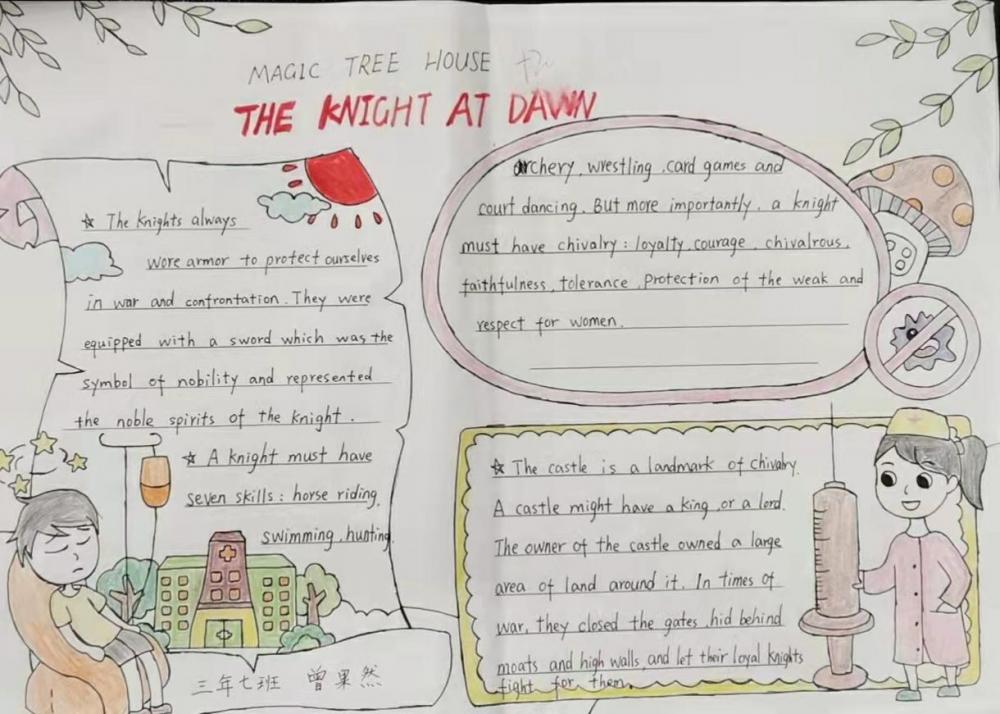 MAGIC TREE HOUSE
THE KNIGHT AT DAWN
☆ The knights always
wore armor to protect ourselves
in war and confrontation. They were
equipped with a sword which was the
symbol of nobility and represented
the noble spirits of the knight.
☆ A knight must have
seven skills: horse riding,
swimming, hunting,
archery, wrestling, card games and
court dancing. But more importantly, a knight
must have chivalry: loyalty, courage, chivalrous,
faithfulness, tolerance, Protection of the weak and
respect for women.
☆ The castle is a landmark of chivalry.
A castle might have a king, or a lord.
The owner of the castle owned a large
area of land around it. In times of
war, they closed the gates, hid behind
moats and high walls, and let their loyal knights
fight for them.
三年七班 曾果然